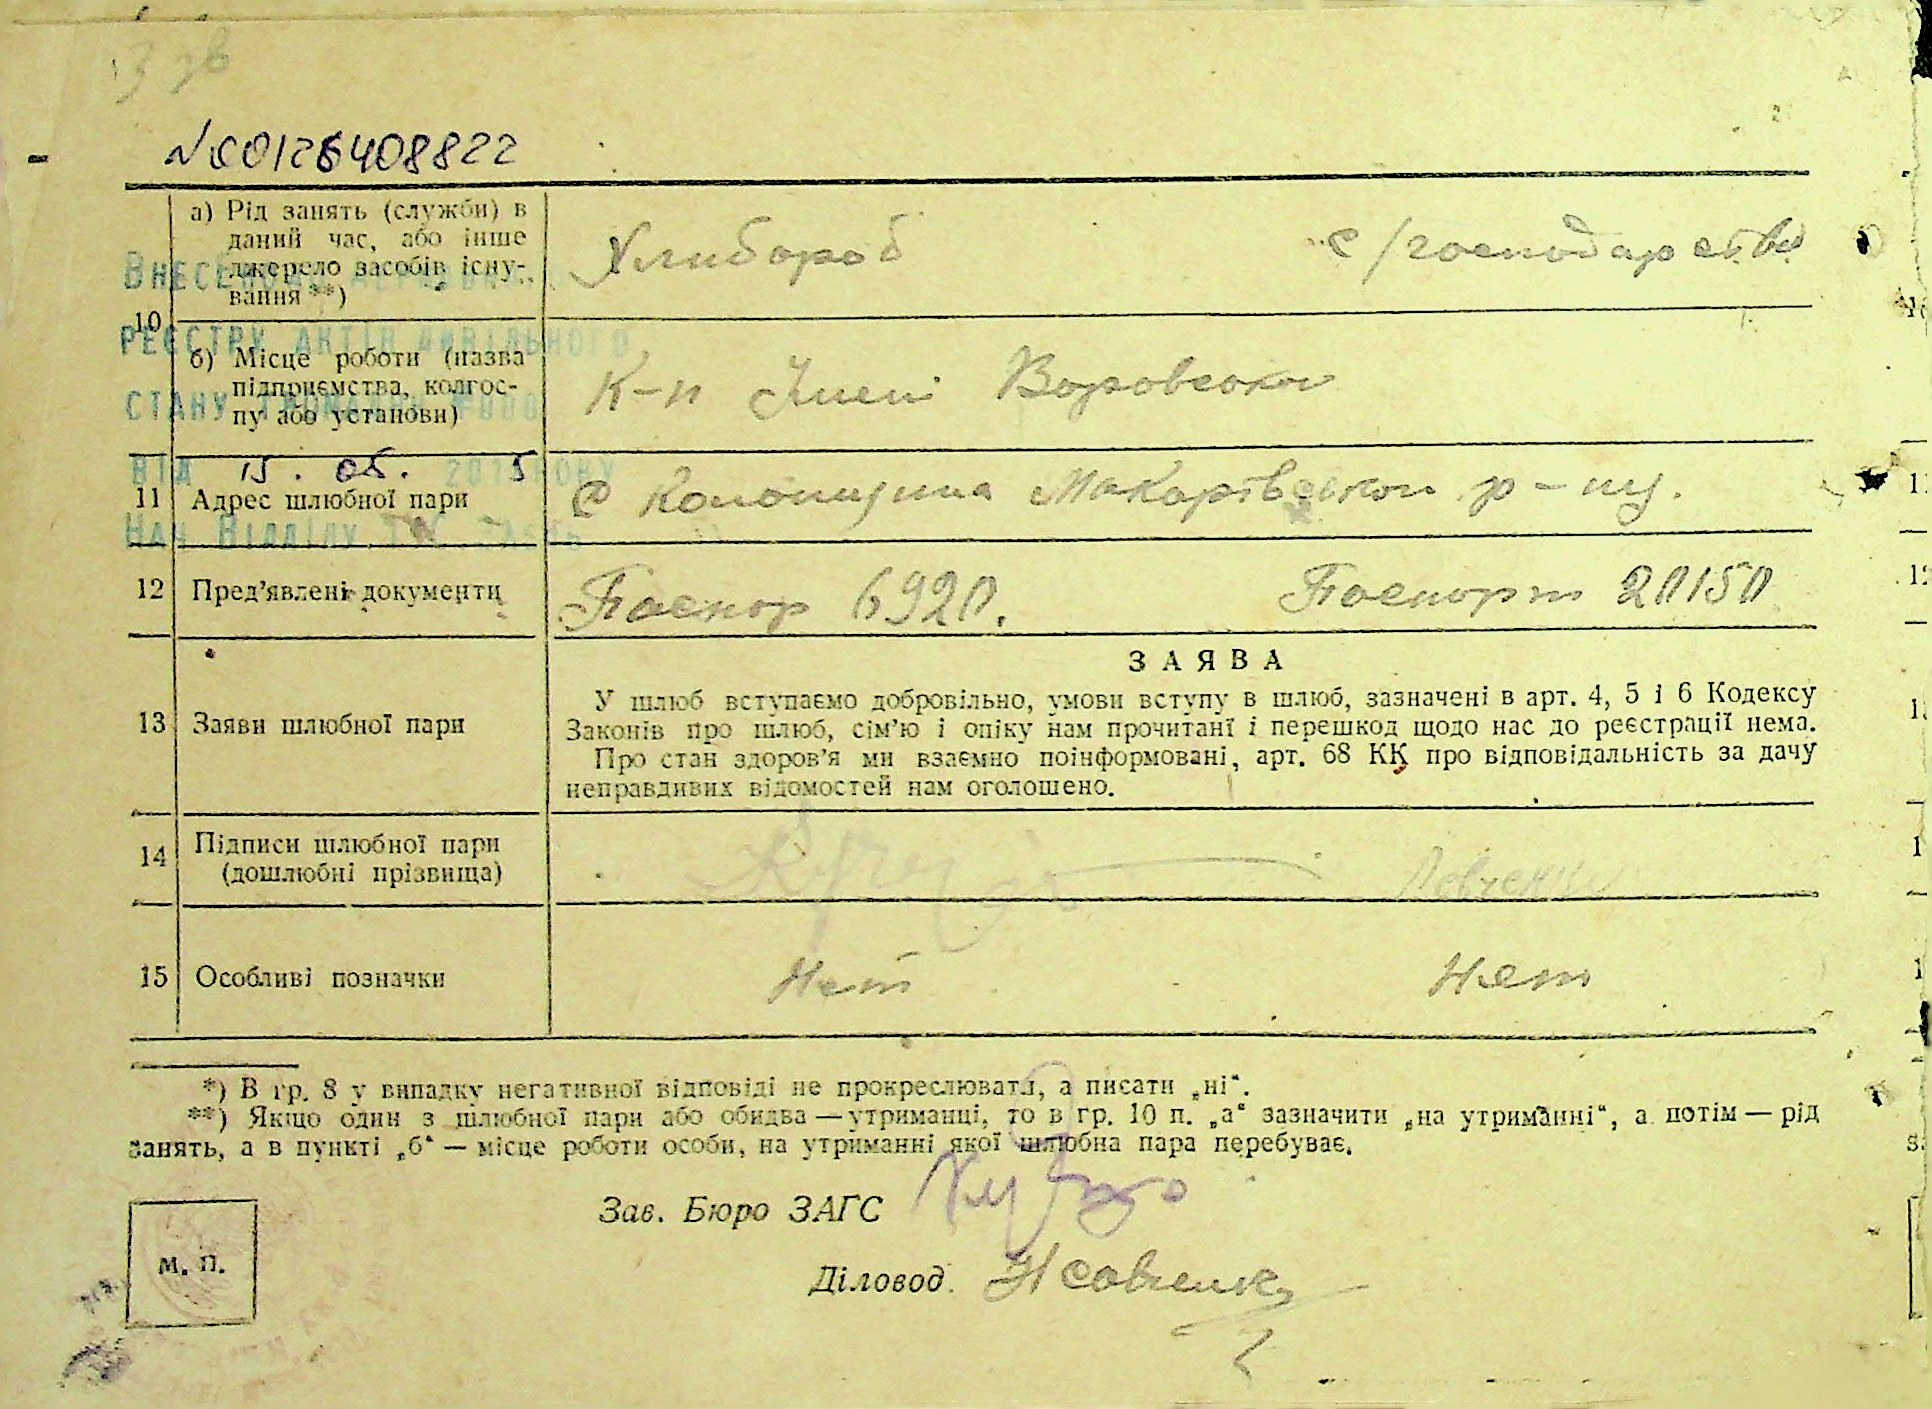 № 00126408822
а) Рід занять (служби) в
даний час, або інше
джерело засобів існу-
вання **)
Хлибороб с/господарства
ВНЕСЕНО
10
РЕЄСТРУ АКТІВ ЦИВІЛЬНОГО
б) Місце роботи (назва
підприємства, колгос-
пу або установи)
К-п Імені Воровсько
СТАНУ ГРОМАДЯН
ВІД 15. 05. 2015 РОКУ
11 Адрес шлюбної пари
с Колонщина Макарівськой р-ну.
НАЧ ВІДДІЛУ
12 Пред'явлені документи
Паспор 6920. Паспорт 20150
ЗАЯВА
13 Заяви шлюбної пари
У шлюб вступаємо добровільно, умови вступу в шлюб, зазначені в арт. 4, 5 і 6 Кодексу
Законів про шлюб, сім'ю і опіку нам прочитані і перешкод щодо нас до реєстрації нема.
Про стан здоров'я ми взаємно поінформовані, арт. 68 КК про відповідальність за дачу
неправдивих відомостей нам оголошено.
14 Підписи шлюбної пари
(дошлюбні прізвища)
15 Особливі позначки
Нет Нет
*) В гр. 8 у випадку негативної відповіді не прокреслювати, а писати „ні“.
**) Якщо один з шлюбної пари або обидва — утриманці, то в гр. 10 п. „а“ зазначити „на утриманні“, а потім — рід
занять, а в пункті „б“ — місце роботи особи, на утриманні якої шлюбна пара перебуває.
Зав. Бюро ЗАГС
Діловод.
М. П.